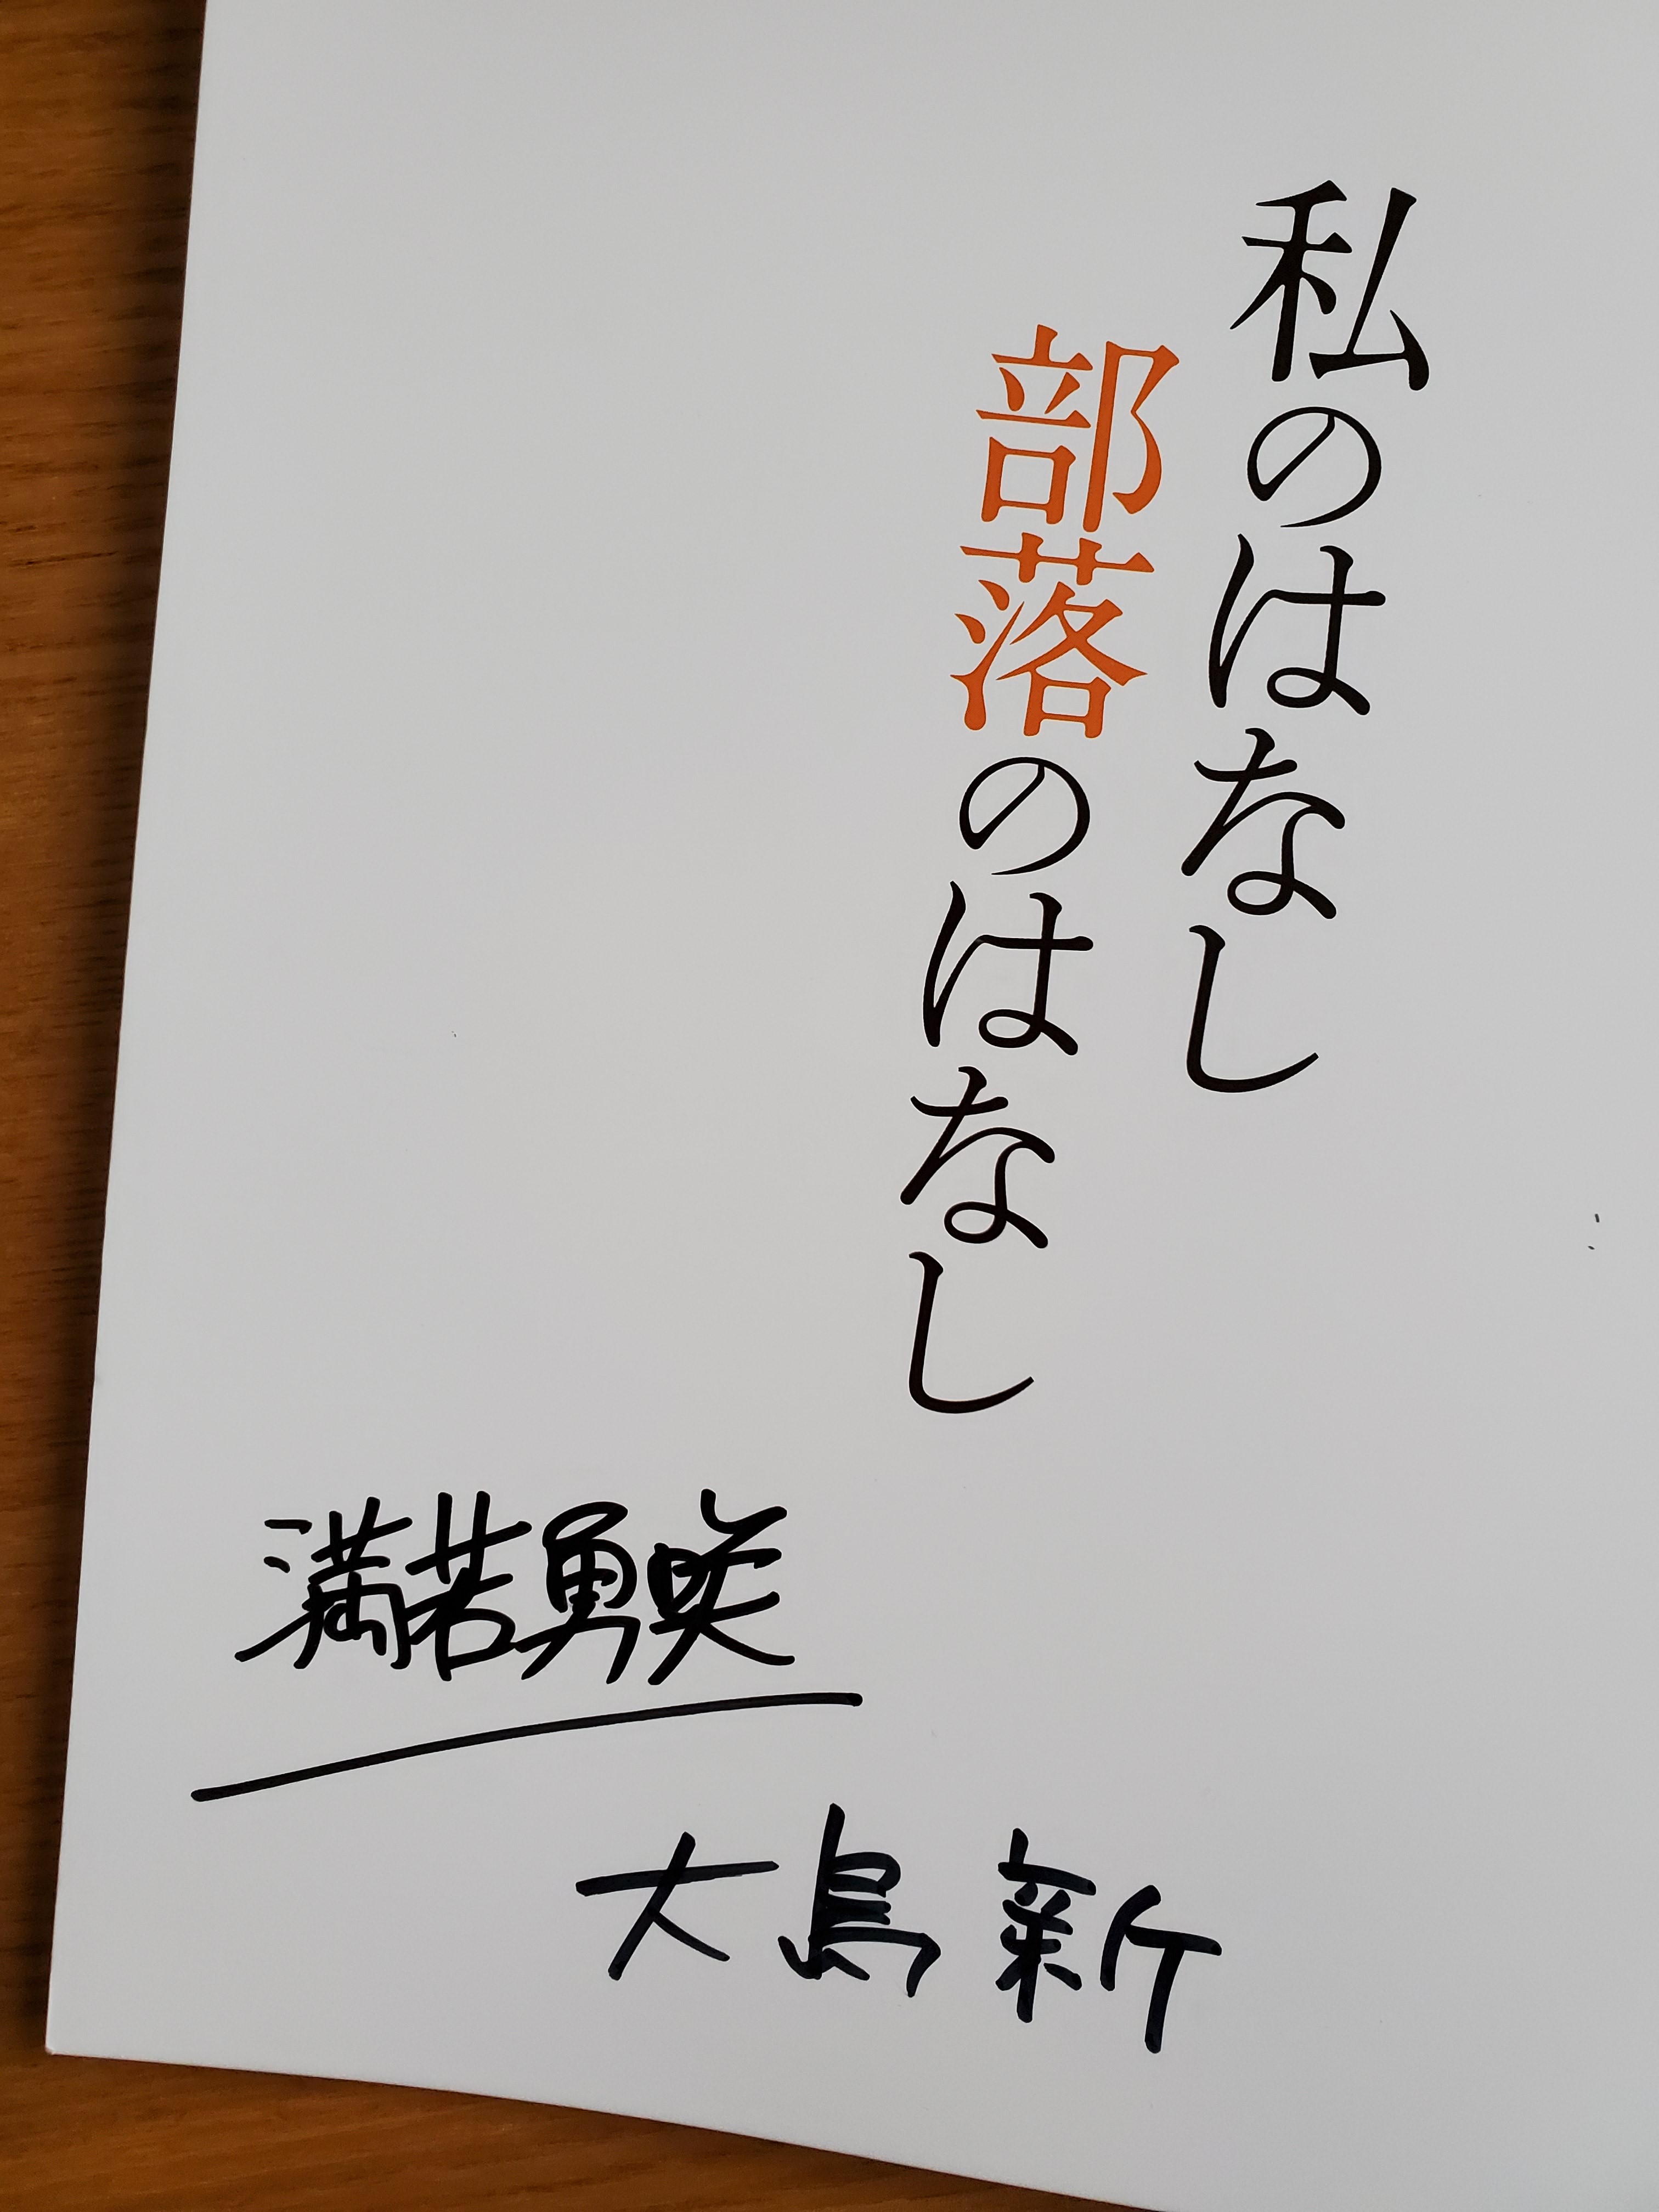 私のはなし
部落のはなし
満若勇咲
大島新